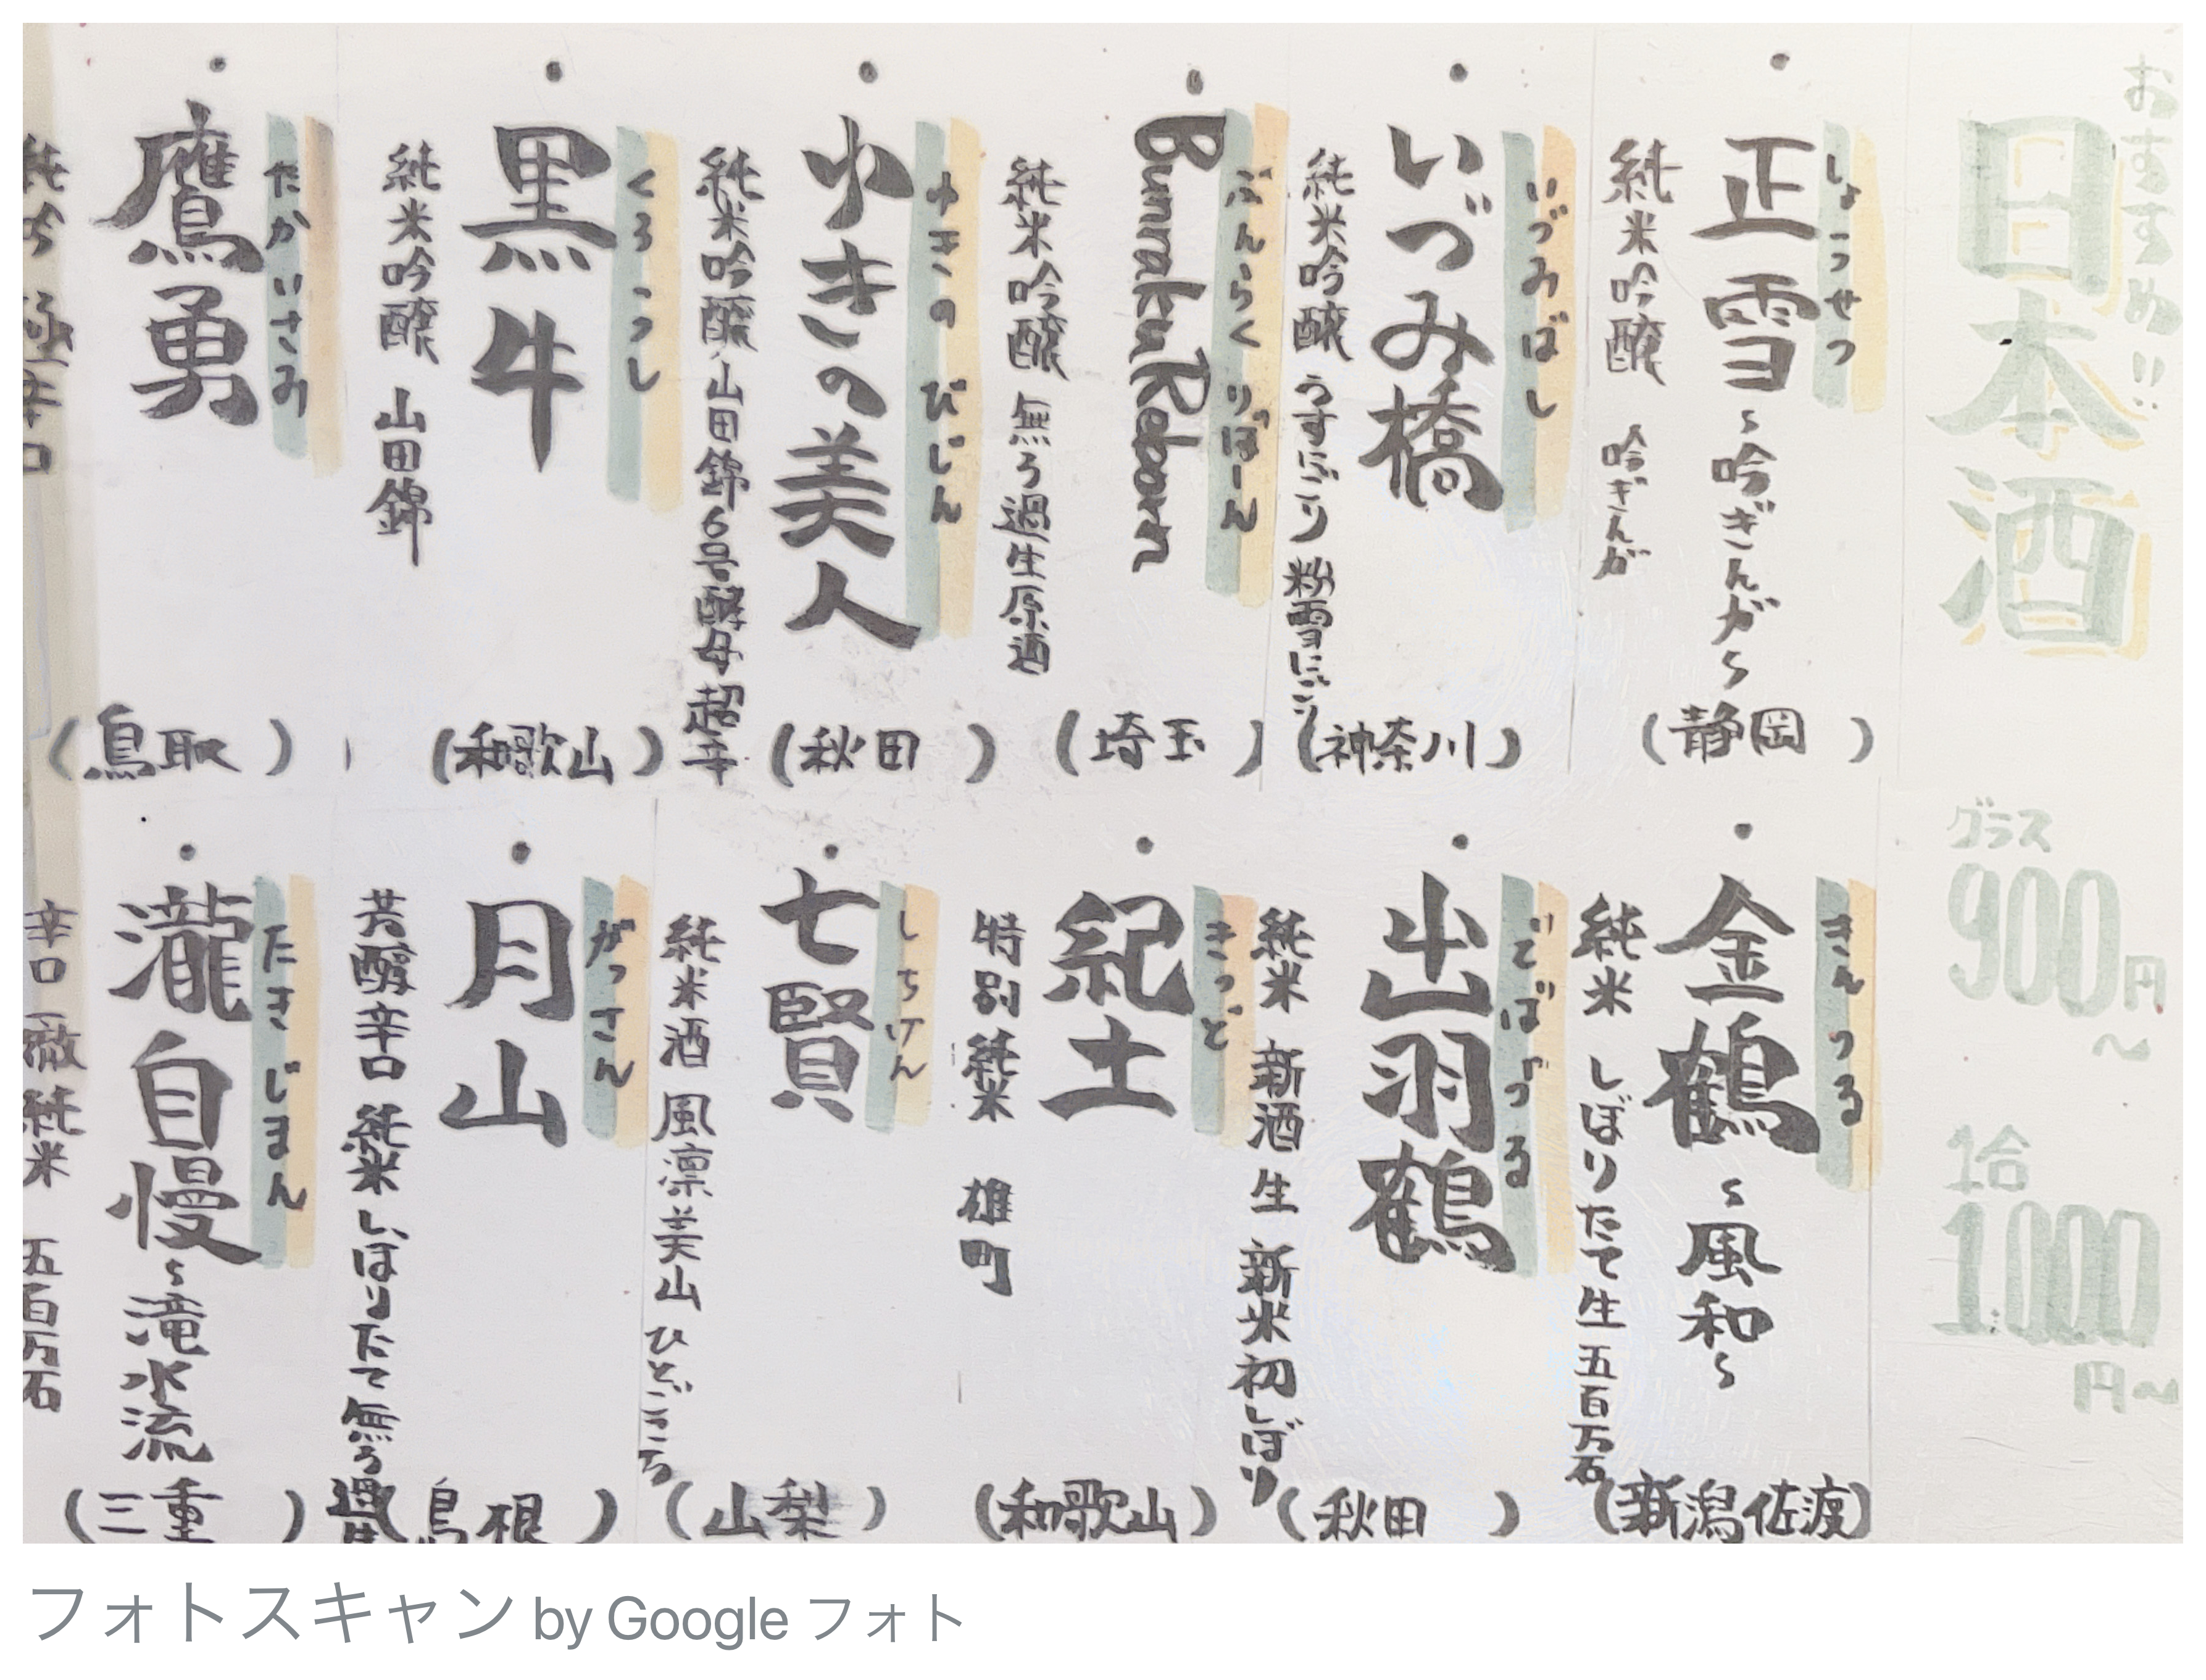 おすすめ!!
日本酒
グラス
900円~
1合
1000円~
・正雪~吟ぎんが~
しょうせつ
純米吟醸 吟ぎんが
(静岡)
・いづみ橋
いづみばし
純米吟醸 うすにごり 粉雪にごり
(神奈川)
・Bunraku Reborn
ぶんらく りぼーん
純米吟醸 無ろ過生原酒
(埼玉)
・ゆきの美人
ゆきのびじん
純米吟醸 山田錦6号酵母 超辛
(秋田)
・黒牛
くろうし
純米吟醸 山田錦
(和歌山)
・鷹勇
たかいさみ
純吟 極辛口
(鳥取)
・金鶴~風和~
きんつる
純米 しぼりたて生 五百万石
(新潟佐渡)
・出羽鶴
でばづる
純米 新酒 生 新米初しぼり
(秋田)
・紀土
きっど
特別純米 雄町
(和歌山)
・七賢
しちけん
純米酒 風凛美山 ひとごこち
(山梨)
・月山
がっさん
芳醇辛口 純米 しぼりたて 無ろ過生
(島根)
・瀧自慢~滝水流
たきじまん
辛口一徹純米 五百万石
(三重)
フォトスキャン by Google フォト